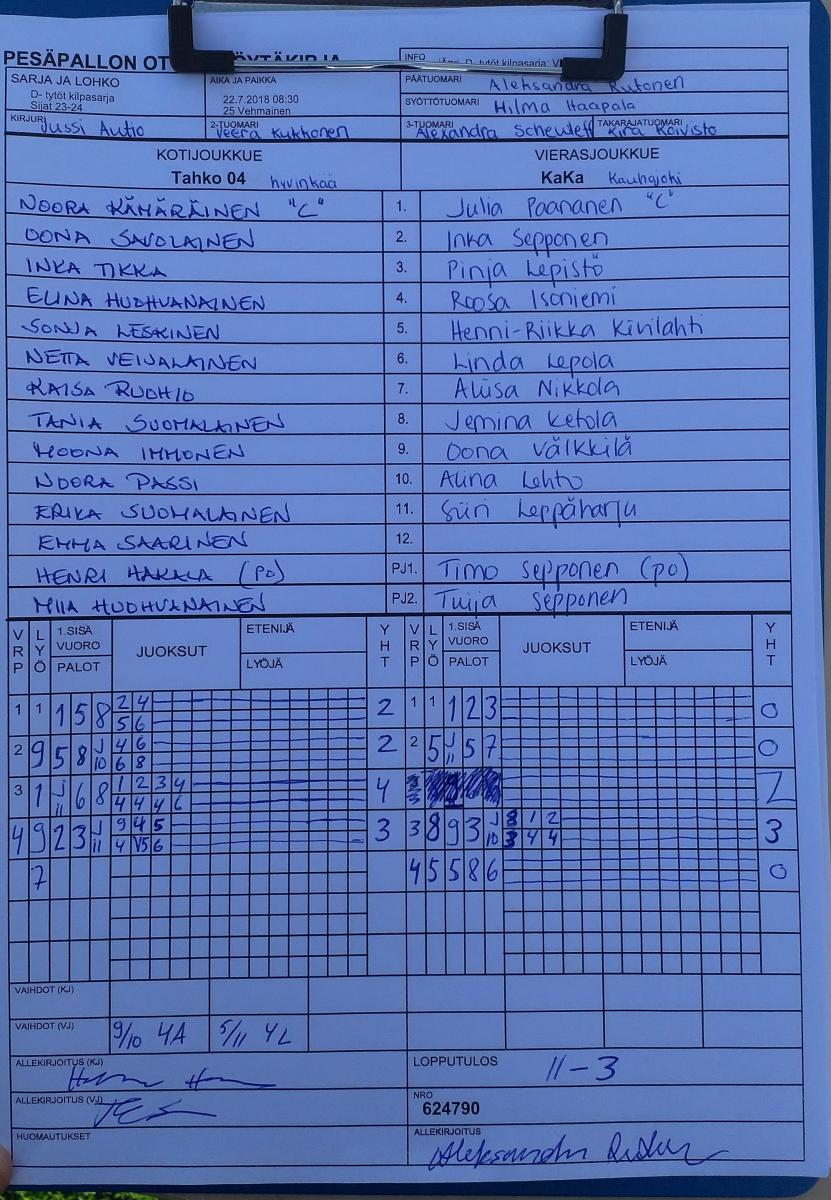 PESÄPALLON
INFO
SARJA JA LOHKO
D- tytöt kilpasarja
Sijat 23-24
AIKA JA PAIKKA
22.7.2018 08:30
25 Vehmainen
PÄÄTUOMARI Aleksandra Rutonen
SYÖTTÖTUOMARI Hilma Haapala
KIRJURI Jussi Autio
2-TUOMARI Veera Kukkonen
3-TUOMARI Alexandra
TAKARAJATUOMARI Kira Koivisto
KOTIJOUKKUE VIERASJOUKKUE
Tahko 04 hyvinkää KaKa Kauhajoki
NOORA KÄMÄRÄINEN "C" 1. Julia Paananen "C"
OONA SAVOLAINEN 2. Inka Sepponen
INKA TIKKA 3. Pinja Lepistö
ELINA HUOHVANAINEN 4. Roosa Isoniemi
SONJA LESKINEN 5. Henni-Riikka Kivilahti
NETTA VEIJALAINEN 6. Linda Lepola
KAISA RUOHIO 7. Aliisa Nikkola
TANJA SUOMALAINEN 8. Jemina Ketola
MOONA IMMONEN 9. Oona Välkkilä
NOORA PASSI 10. Alina Lehto
ERIKA SUOMALAINEN 11. Siiri Leppäharju
EMMA SAARINEN 12.
HENRI HAKALA (PO) PJ1. Timo Sepponen (po)
MIIA HUOHVANAINEN PJ2. Tuija Sepponen
VRP LYÖ 1.SISÄ VUORO PALOT JUOKSUT ETENIJÄ LYÖJÄ YHT VRP LYÖ 1.SISÄ VUORO PALOT JUOKSUT ETENIJÄ LYÖJÄ YHT
1 1 1 5 8 2 4 2 1 1 1 2 3 0
5 6
2 9 5 8 J10 4 6 2 2 5 J11 5 7 0
6 8
3 1 J11 6 8 1 2 3 4 4
4 4 4 6
4 9 2 3 J11 9 4 5 3 3 8 9 3 J10 8 1 2 3
4 V5 6 3 4 4
7 4 5 5 8 6 0
VAIHDOT (KJ)
VAIHDOT (VJ) 9/10 4A 5/11 4L
ALLEKIRJOITUS (KJ)
LOPPUTULOS 11-3
ALLEKIRJOITUS (VJ)
NRO
624790
HUOMAUTUKSET
ALLEKIRJOITUS Aleksandra